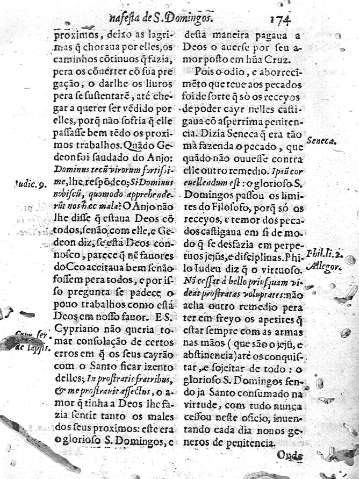 na festa de S. Domingos.
174
proximos, deixo as lagri-
mas q̃ choraua por elles, os
caminhos cõtinuos q̃ fazia,
pera os cõuerter cõ sua pre
gação, o darlhe os liuros
pera se sustentarẽ, atè che-
gar a querer ser vẽdido por
elles, porq̃ não sofria q̃ elle
passasse bem tẽdo os proxi-
mos trabalhos. Quãdo Ge-
deon foi saudado do Anjo:
Dominus tecũ virorum fortissi-
me, lhe respõdeo; Si Dominus
nobiscũ, quomodo apprehende-
rũt nos hæc mala? O Anjo não
lhe disse q̃ estaua Deos cõ
todos, senão, com elle, e Ge-
deon diz, se està Deos con-
nosco, parece q̃ nẽ fauores
do Ceo aceitaua bem se não
fossem pera todos, e por is-
so pregunta se padece o
pouo trabalhos como està
Deos em nosso fauor. E S.
Cypriano não queria to-
mar consolação de certos
erros em q̃ os seus cayrão
com o Santo ficar izento
delles; In prostratis fratribus,
& me prostrauit affectus, o a-
mor q̃ tinha a Deos lhe fa-
zia sentir tanto os males
dos seus proximos: este era
o glorioso S. Domingos, e
Iudic. 9.
desta maneira pagaua a
Deos o auerse por seu a-
mor posto em hũa Cruz.
Pois o odio, e aborreci-
mẽto que teue aos pecados
foi de forte q̃ sò os receyos
de poder cayr nelles casti-
gaua cõ asperrima peniten-
cia. Dizia Seneca q̃ era tão
mà fazenda o pecado, que
quãdo não ouuesse contra
elle outro remedio.
glorioso S.
Domingos passou os limi-
tes do Filosofo, porq̃ sò os
receyos, e temor dos peca-
dos castigaua em si de mo-
do q̃ se desfazia em perpe-
tuos jejũs, e disciplinas. Phi-
lo Iudeu diz q̃ o virtuoso.
não
acha outro remedio pera
ter em freyo os apetites q̃
estar sempre com as armas
nas mãos (que são o jejũ, e
abstinencia) atè os conquis-
tar, e sojeitar de todo: o
glorioso S. Domingos sen-
do ja Santo consumado na
virtude, com tudo nunca
cessou neste oficio, inuen-
tando cada dia nouos ge-
neros de penitencia.
Onde
Seneca.
Phil. li. 2.
Allegor.